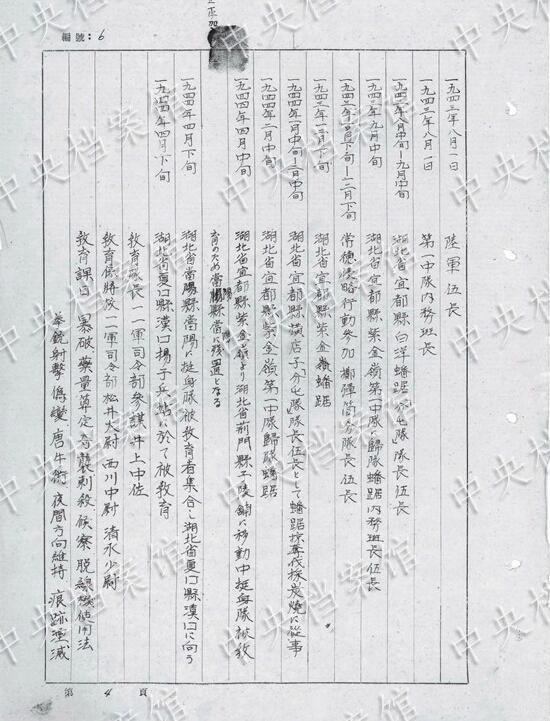 編號: 6
一九四三年八月一日　陸軍伍長
一九四三年八月一日　第一中隊内務班長
一九四三年八月中旬―九月中旬　湖北省宜都縣白洋蟠踞「分屯」隊隊長 伍長
一九四三年九月中旬　湖北省宜都縣紫金嶺第一中隊ニ歸隊蟠踞内務班長伍長
下旬―一二月下旬　常徳侵略行動参加擲弾筒分隊長 伍長
一九四三年一二月下旬　湖北省宜都縣紫金嶺蟠踞
一九四四年一月中旬―二月中旬　湖北省宜都縣 店子「分屯」隊隊長伍長として蟠踞掠奪伐採炭焼に從事
一九四四年二月中旬　湖北省宜都縣紫金嶺第一中隊ニ歸隊蟠踞
一九四四年四月中旬　湖北省宜都縣紫金嶺より湖北省荊門縣子陵鋪に移動中挺身隊被教
育のため當陽縣當陽に残置となる
一九四四年四月下旬　湖北省當陽縣當陽に挺身隊被教育者集合し湖北省夏口縣漢口に向う
一九四四年四月下旬　湖北省夏口縣漢口揚子兵站に於て被教育
教育隊長 一一軍司令部参謀井上中佐
教育係将校 一一軍司令部松井大尉 西川中尉 清水少尉
教育課目 暴破薬量算定 奇襲刺殺 候察 脱線機使用法
拳銃射撃 偽變 唐手術 夜間方向維持 痕跡湮滅
第 4 頁
中央档案馆